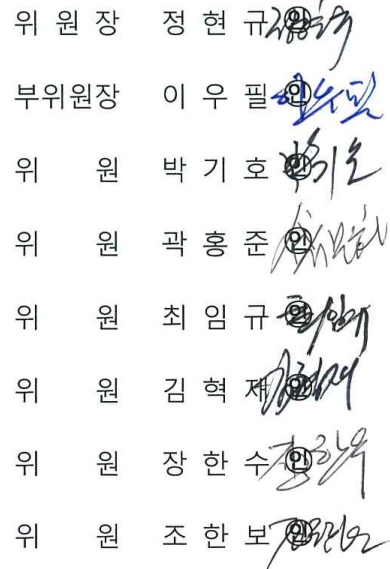 위 원 장 정 현 규 ㊞
부위원장 이 우 필 ㊞
위 원 박 기 호 ㊞
위 원 곽 홍 준 ㊞
위 원 최 임 규 ㊞
위 원 김 혁 재 ㊞
위 원 장 한 수 ㊞
위 원 조 한 보 ㊞